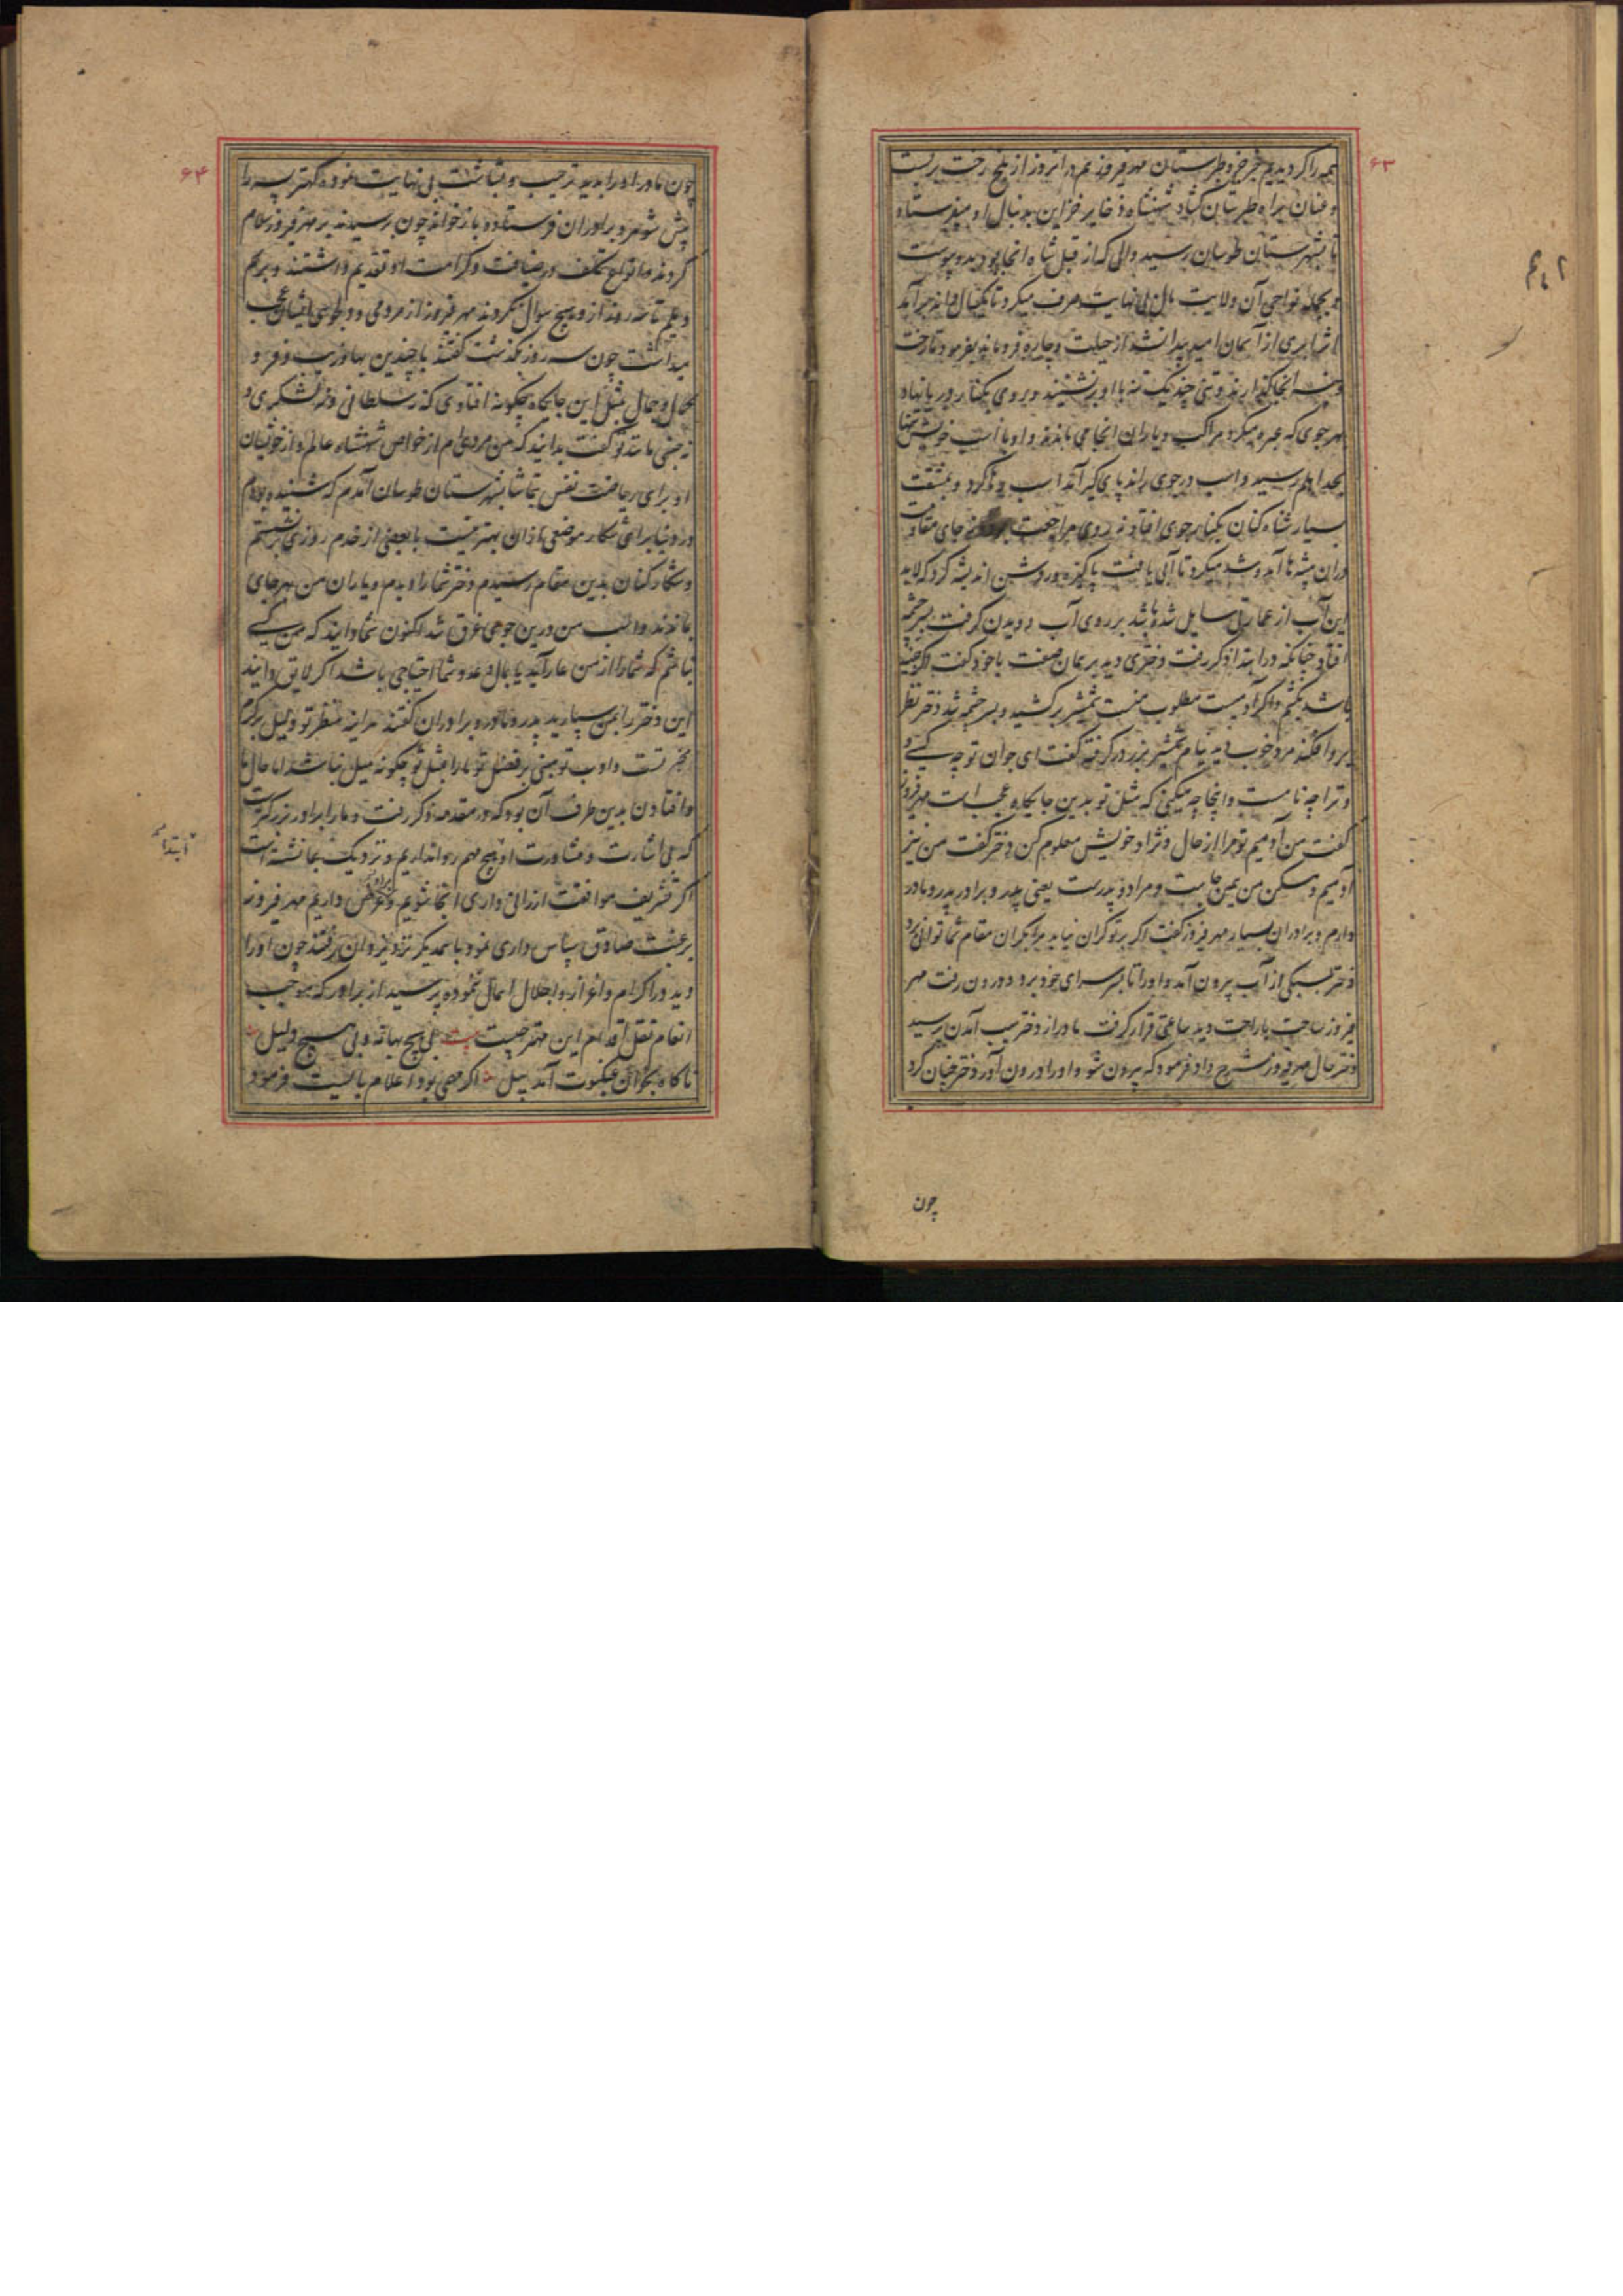 ۶۳
همه را کردیدیم جز خرو طبرستان مهر فیروز هم در آنروز از بلخ رخت بر بست
و عنان براه طبرستان کشاد شهنشاه ذخایر خزاین بدنبال او میفرستاد
تا بشهرستان طوسان رسید والی که از قبل شاه انجا بود بدو پیوست
و بجمله نواحی آن ولایت مال بی نهایت صرف میکرد تا یکسال
از آسمان امید پیدا نشد از حیلت و چاره فرو ماند بفرمود تا رخت
انجا بگذارند و تنی چند نیک تنه با او بر نشینند و بروی بکنار دریا نهاد
بهر جوی که عبره میکرد مراکب و یاران انجا می ماندند و او با اسب خویش تنها
رسید و اسب در جوی راند پای گیر آمد اسب رها کرد و بمشقت
بسیار شناه کنان بکنار جوی افتاد نه روی مراجعت نه جای مقاومت
دران بیشه ها آمد و شد میکرد تا آبی یافت پاکیزه و روشن اندیشه کرد که لابد
این آب از عمارتی سایل شده باشد بر روی آب دویدن گرفت بسر چشمه
افتاد چنانکه در ابتدا ذکر رفت دختری دید بر همان صفت با خود گفت اگر جنیه
باشد بکشم و اگر آدمیست مطلوب منست شمشیر برکشید و بسر چشمه شد دختر نظر
برو افکند مرد خوب دید نیام شمشیر بزر در گرفته گفت ای جوان تو چه کسی و
و ترا چه نامست و اینجا چه میکنی که مثل تو بدین جایگاه عجبست مهر فیروز
گفت من آدمیم تو مرا از حال و نژاد خویش معلوم کن دختر گفت من نیز
آدمیم و مسکن من همین جاست و مراد و پدرست یعنی پدر و برادر پدر و مادر
دارم و برادران بسیار مهر فیروز گفت اگر بر تو گران نیاید مرا بکران مقام شما توانی برد
دختر بسبکی از آب بیرون آمد و او را تا بسر سرای خود برد و درون رفت مهر
فیروز ساحت با راحت دید ساعتی قرار گرفت مادر از دختر سبب آمدن پرسید
دختر حال مهر فیروز شرح داد فرمود که بیرون شو و او را درون آور دختر چنان کرد
چون
۶۴
چون مادر او را بدید ترحیب و بشاشت بی نهایت نموده کهتر پسر را
پیش شوهر و برادران فرستاده باز خواند چون برسیدند بر مهر فیروز سلام
کردند و انواع تکلف در ضیافت و کرامت او تقدیم داشتند و برسم
دیلم تا سه روز ازو هیچ سوال نکردند مهر فیروز از مردمی و دلجوئی ایشان عجب
میداشت چون سه روز بگذشت گفتند با چندین بها و زیب و فر و
کمال و جمال بمثل این جایگاه چگونه افتادی که نه سلطانی و نه لشکری و
نه جنی مانند تو گفت بدانید که من مردی ام از خواص شهنشاه عالم و از خویشان
او برای ریاضت نفس بتماشا بشهرستان طوسان آمدم که شنیده بودم
در دنیا برای شکار موضعی از ان بهتر نیست با بعضی از خدم روزی بر نشستم
و شکار کنان بدین مقام رسیدم دختر شما را دیدم و یاران من بهر جای
بماندند و اسب من درین جوی غرق شد اکنون شما دانید که من کسی
نباشم که شما را از من عار آید یا بمال و عدد شما احتیاجی باشد اگر لایق دانید
این دختر را بمن سپارید پدر و مادر و برادران گفتند هر آینه منظر تو دلیل بر کرم
مخبر تست و ادب تو مبنی بر فضل تو ما را بمثل تو چگونه میل نباشد اما حال ما
و افتادن بدین طرف آن بود که در مقدمه ذکر رفت و ما را برادر بزرگتر هست
که بی اشارت و مشاورت او هیچ مهم روا نداریم و نزدیک بما نشسته است
اگر تشریف موافقت ارزانی داری انجا شویم و عرض داریم مهر فیروز
برغبت صادق سپاس داری نمود با همدیگر نزد یزدان رفتند چون او را
دید در اکرام و اعزاز و اجلال اهمال ننموده پرسید از برادر که موجب
انعام نقل اقدام این مهتر چیست بیت بی هیچ بهانه و بی هیچ دلیل
ناگاه بخوان عنکبوت آمد پیل اگر مهمی بود اعلام بایست فرمود
ابتدا